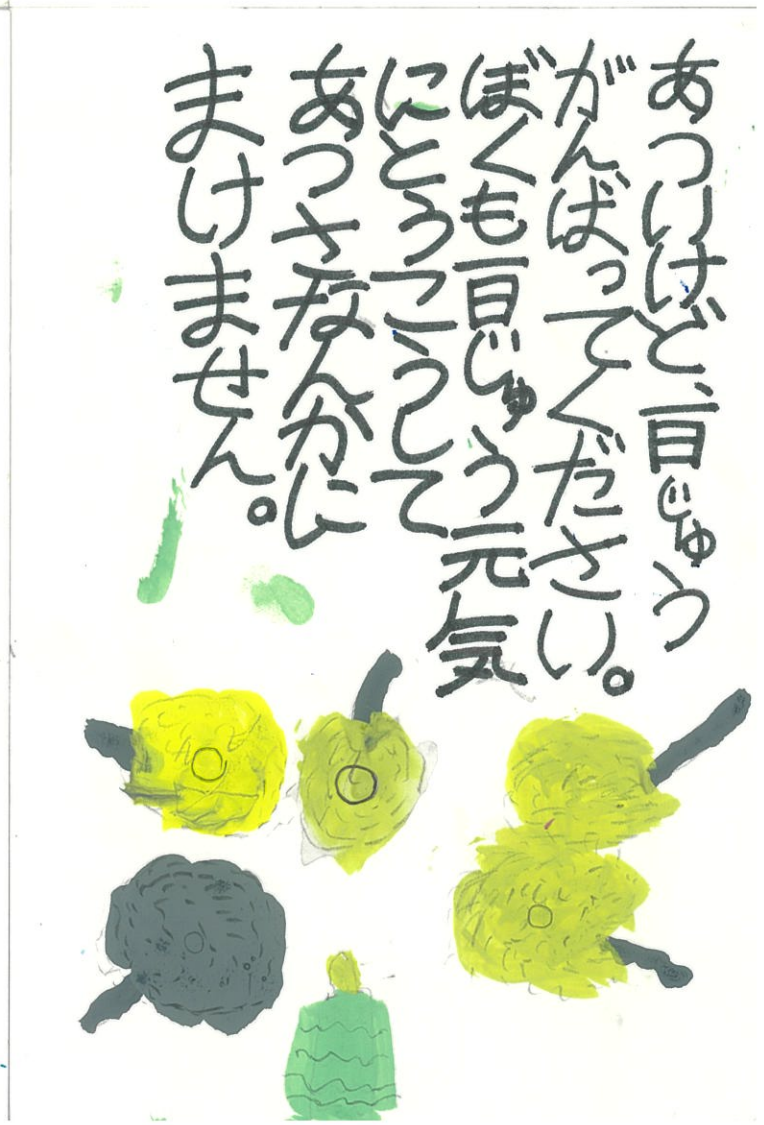 あついけど、一日じゅう
がんばってください。
ぼくも一日じゅう元気
にとうこうして
あつさなんかに
まけません。